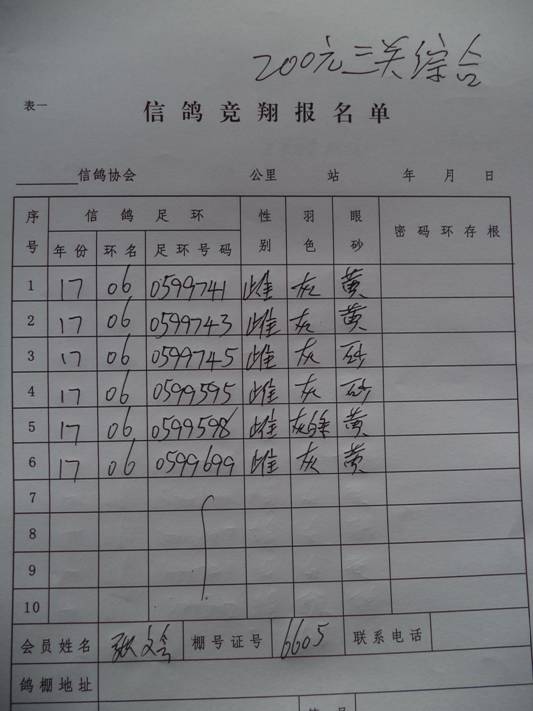 200元三关综合
表一
信鸽竞翔报名单
信鸽协会 公里 站 年 月 日
序号 信鸽足环 性别 羽色 眼砂 密码环存根
年份 环名 足环号码
1 17 06 0599741 雌 灰 黄
2 17 06 0599743 雌 灰 黄
3 17 06 0599745 雌 灰 砂
4 17 06 0599595 雌 灰 砂
5 17 06 0599598 雌 灰白条 黄
6 17 06 0599699 雌 灰 黄
7
8
9
10
会员姓名 张文 棚号证号 6605 联系电话
鸽棚地址